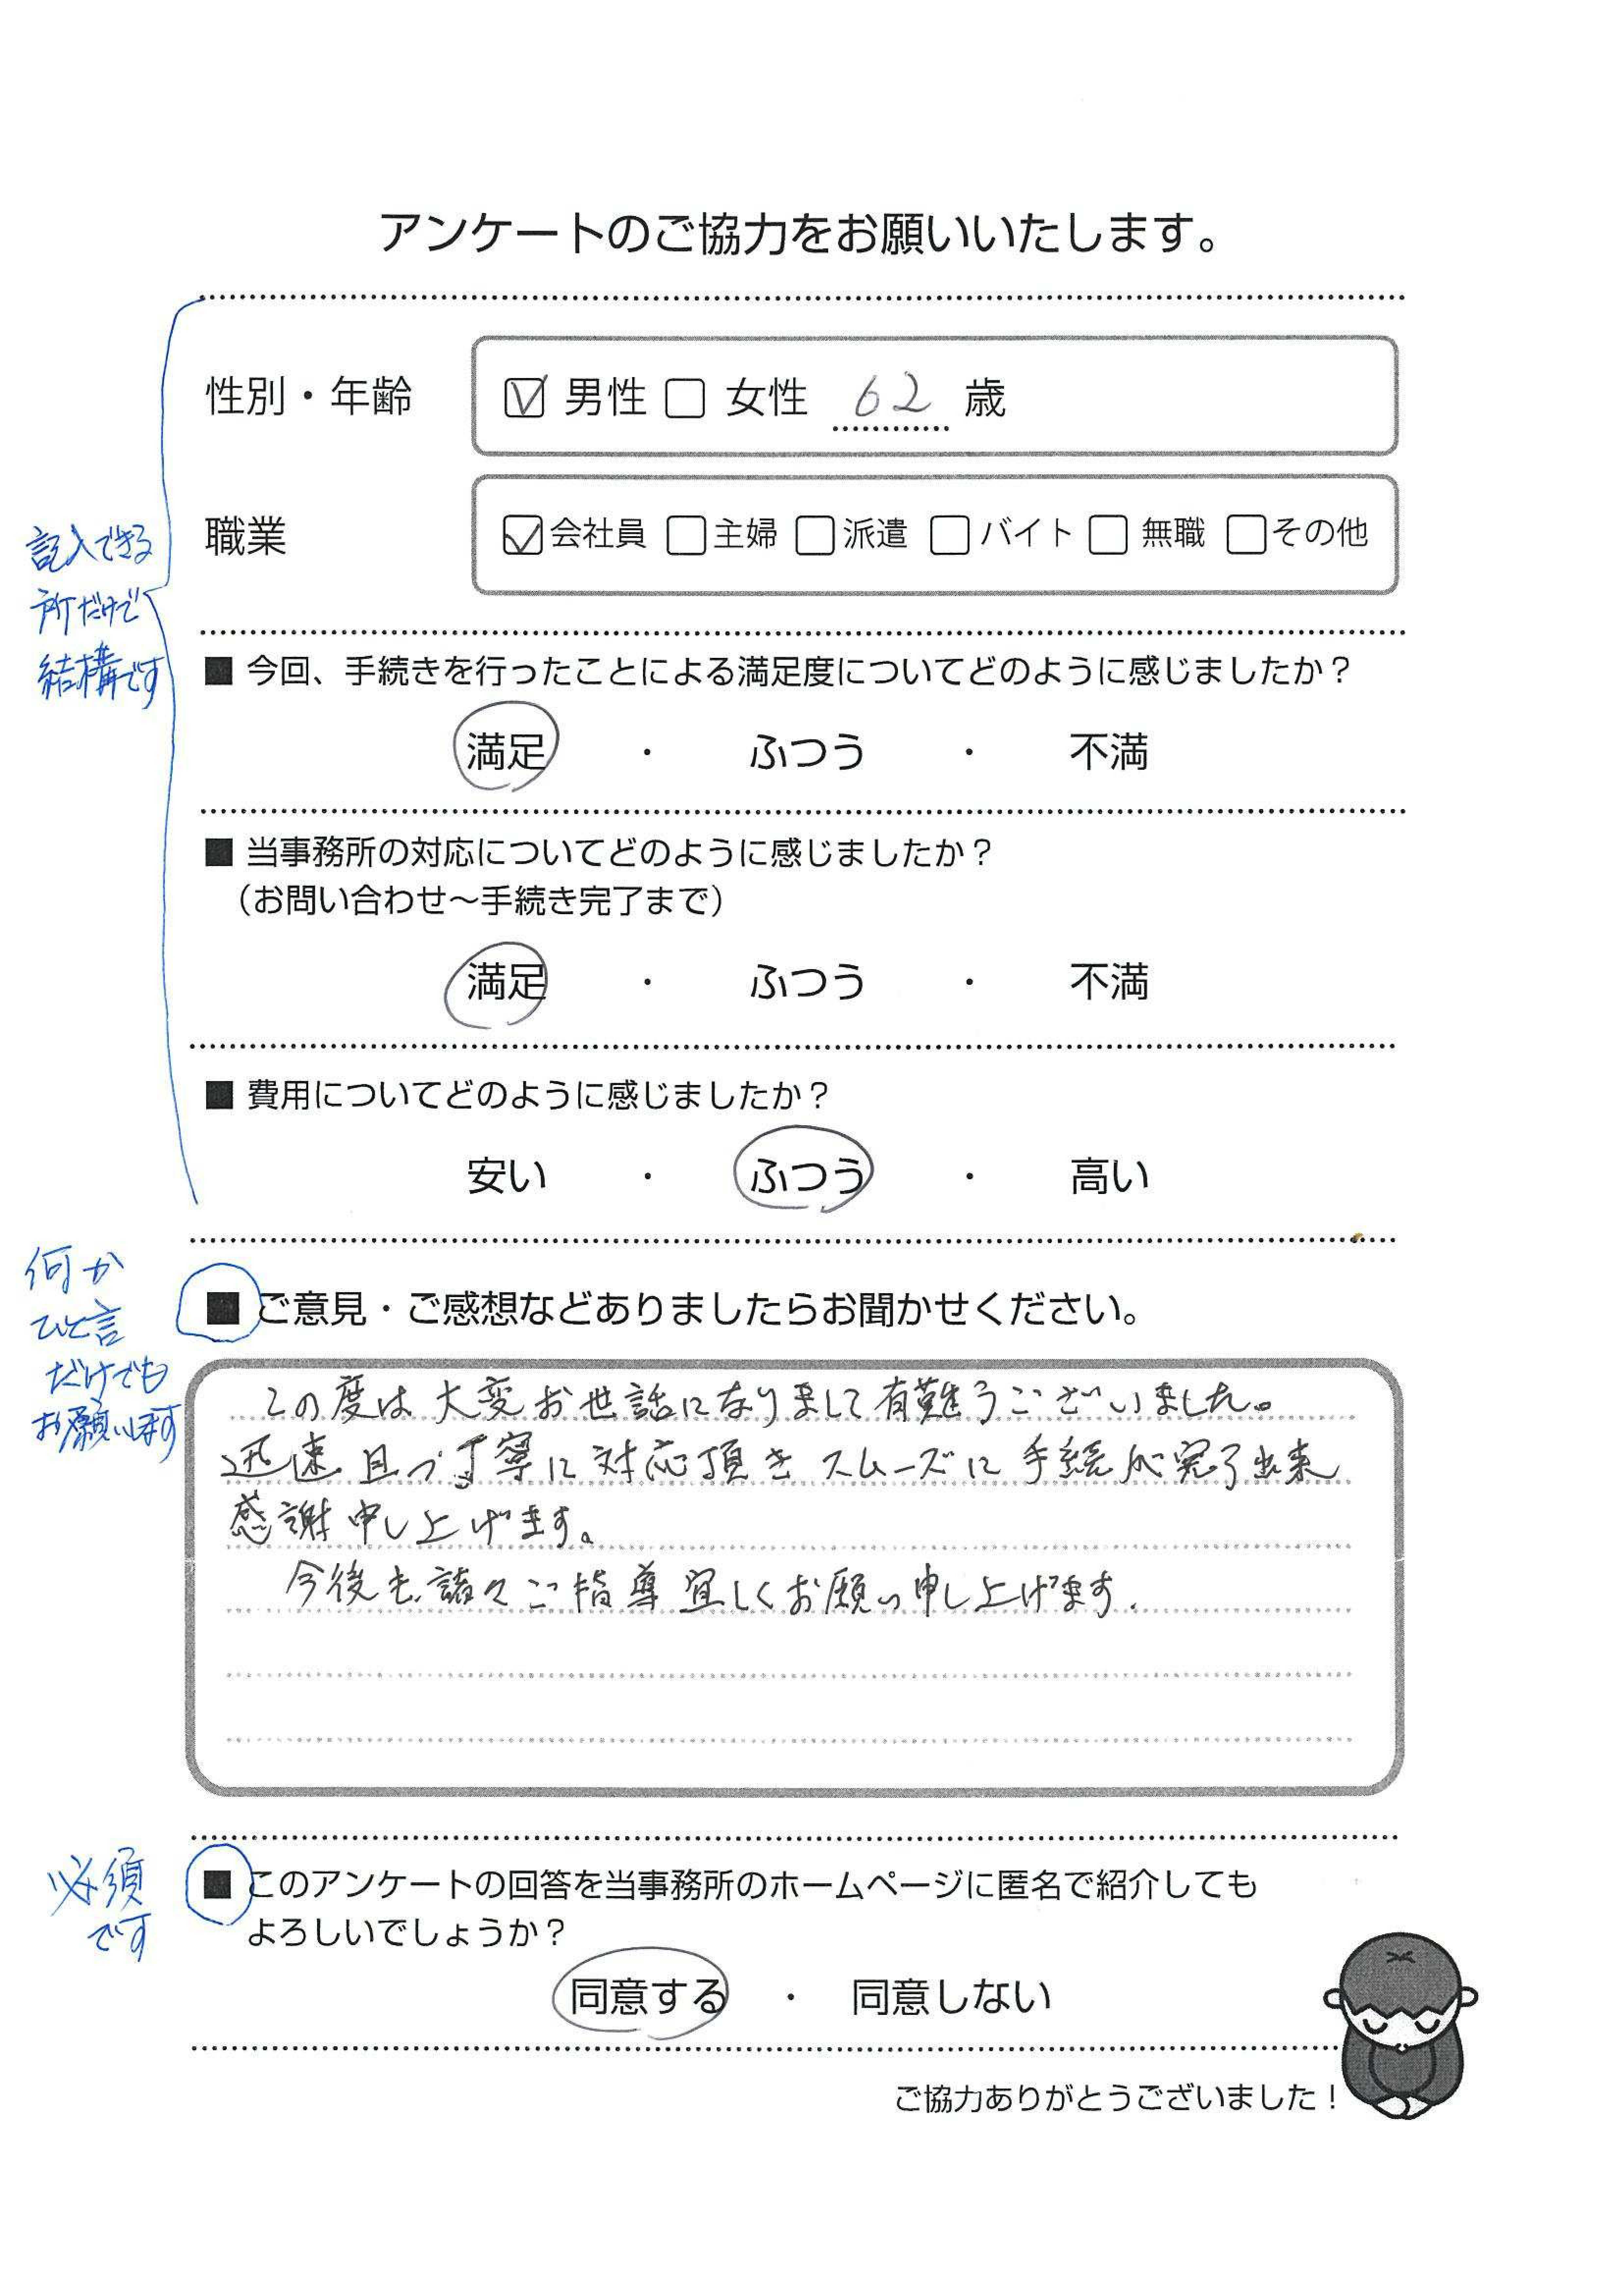 アンケートのご協力をお願いいたします。
性別・年齢
男性 女性 62 歳
職業
会社員 主婦 派遣 バイト 無職 その他
記入できる
所だけで
結構です
■ 今回、手続きを行ったことによる満足度についてどのように感じましたか？
満足 ・ ふつう ・ 不満
■ 当事務所の対応についてどのように感じましたか？
（お問い合わせ〜手続き完了まで）
満足 ・ ふつう ・ 不満
■ 費用についてどのように感じましたか？
安い ・ ふつう ・ 高い
何か
ひと言
だけでも
お願いします
■ ご意見・ご感想などありましたらお聞かせください。
この度は大変お世話になりまして有難うございました。
迅速且つ丁寧に対応頂きスムーズに手続が完了出来
感謝申し上げます。
今後も諸々ご指導宜しくお願い申し上げます.
必須
です
■ このアンケートの回答を当事務所のホームページに匿名で紹介しても
よろしいでしょうか？
同意する ・ 同意しない
ご協力ありがとうございました！